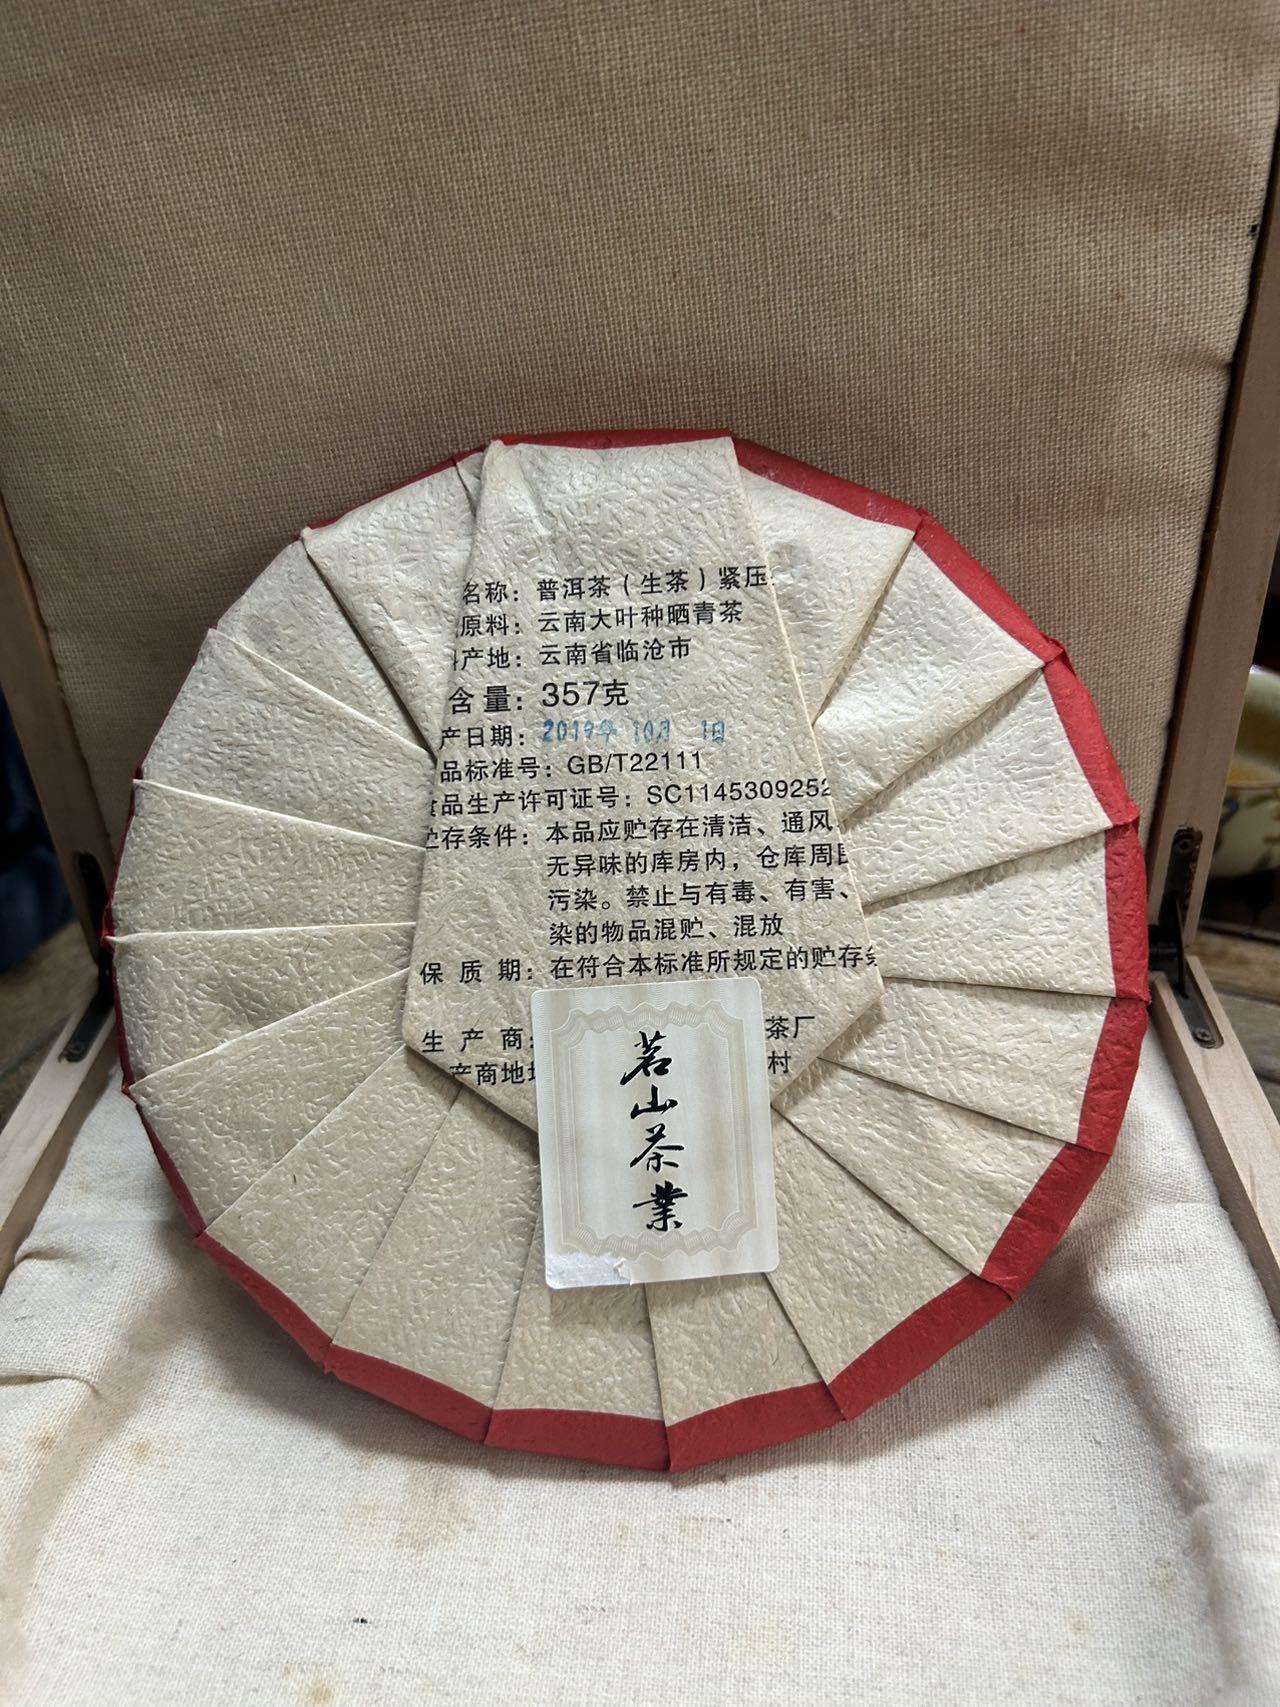 名称：普洱茶（生茶）紧压
原料：云南大叶种晒青茶
产地：云南省临沧市
含量：357克
产日期：2019年 10月 1日
品标准号：GB/T22111
品生产许可证号：SC1145309252
贮存条件：本品应贮存在清洁、通风、
无异味的库房内，仓库周围
污染。禁止与有毒、有害、
染的物品混贮、混放
保质期：在符合本标准所规定的贮存条
生产商：茶厂
产商地址 村
茗山茶業